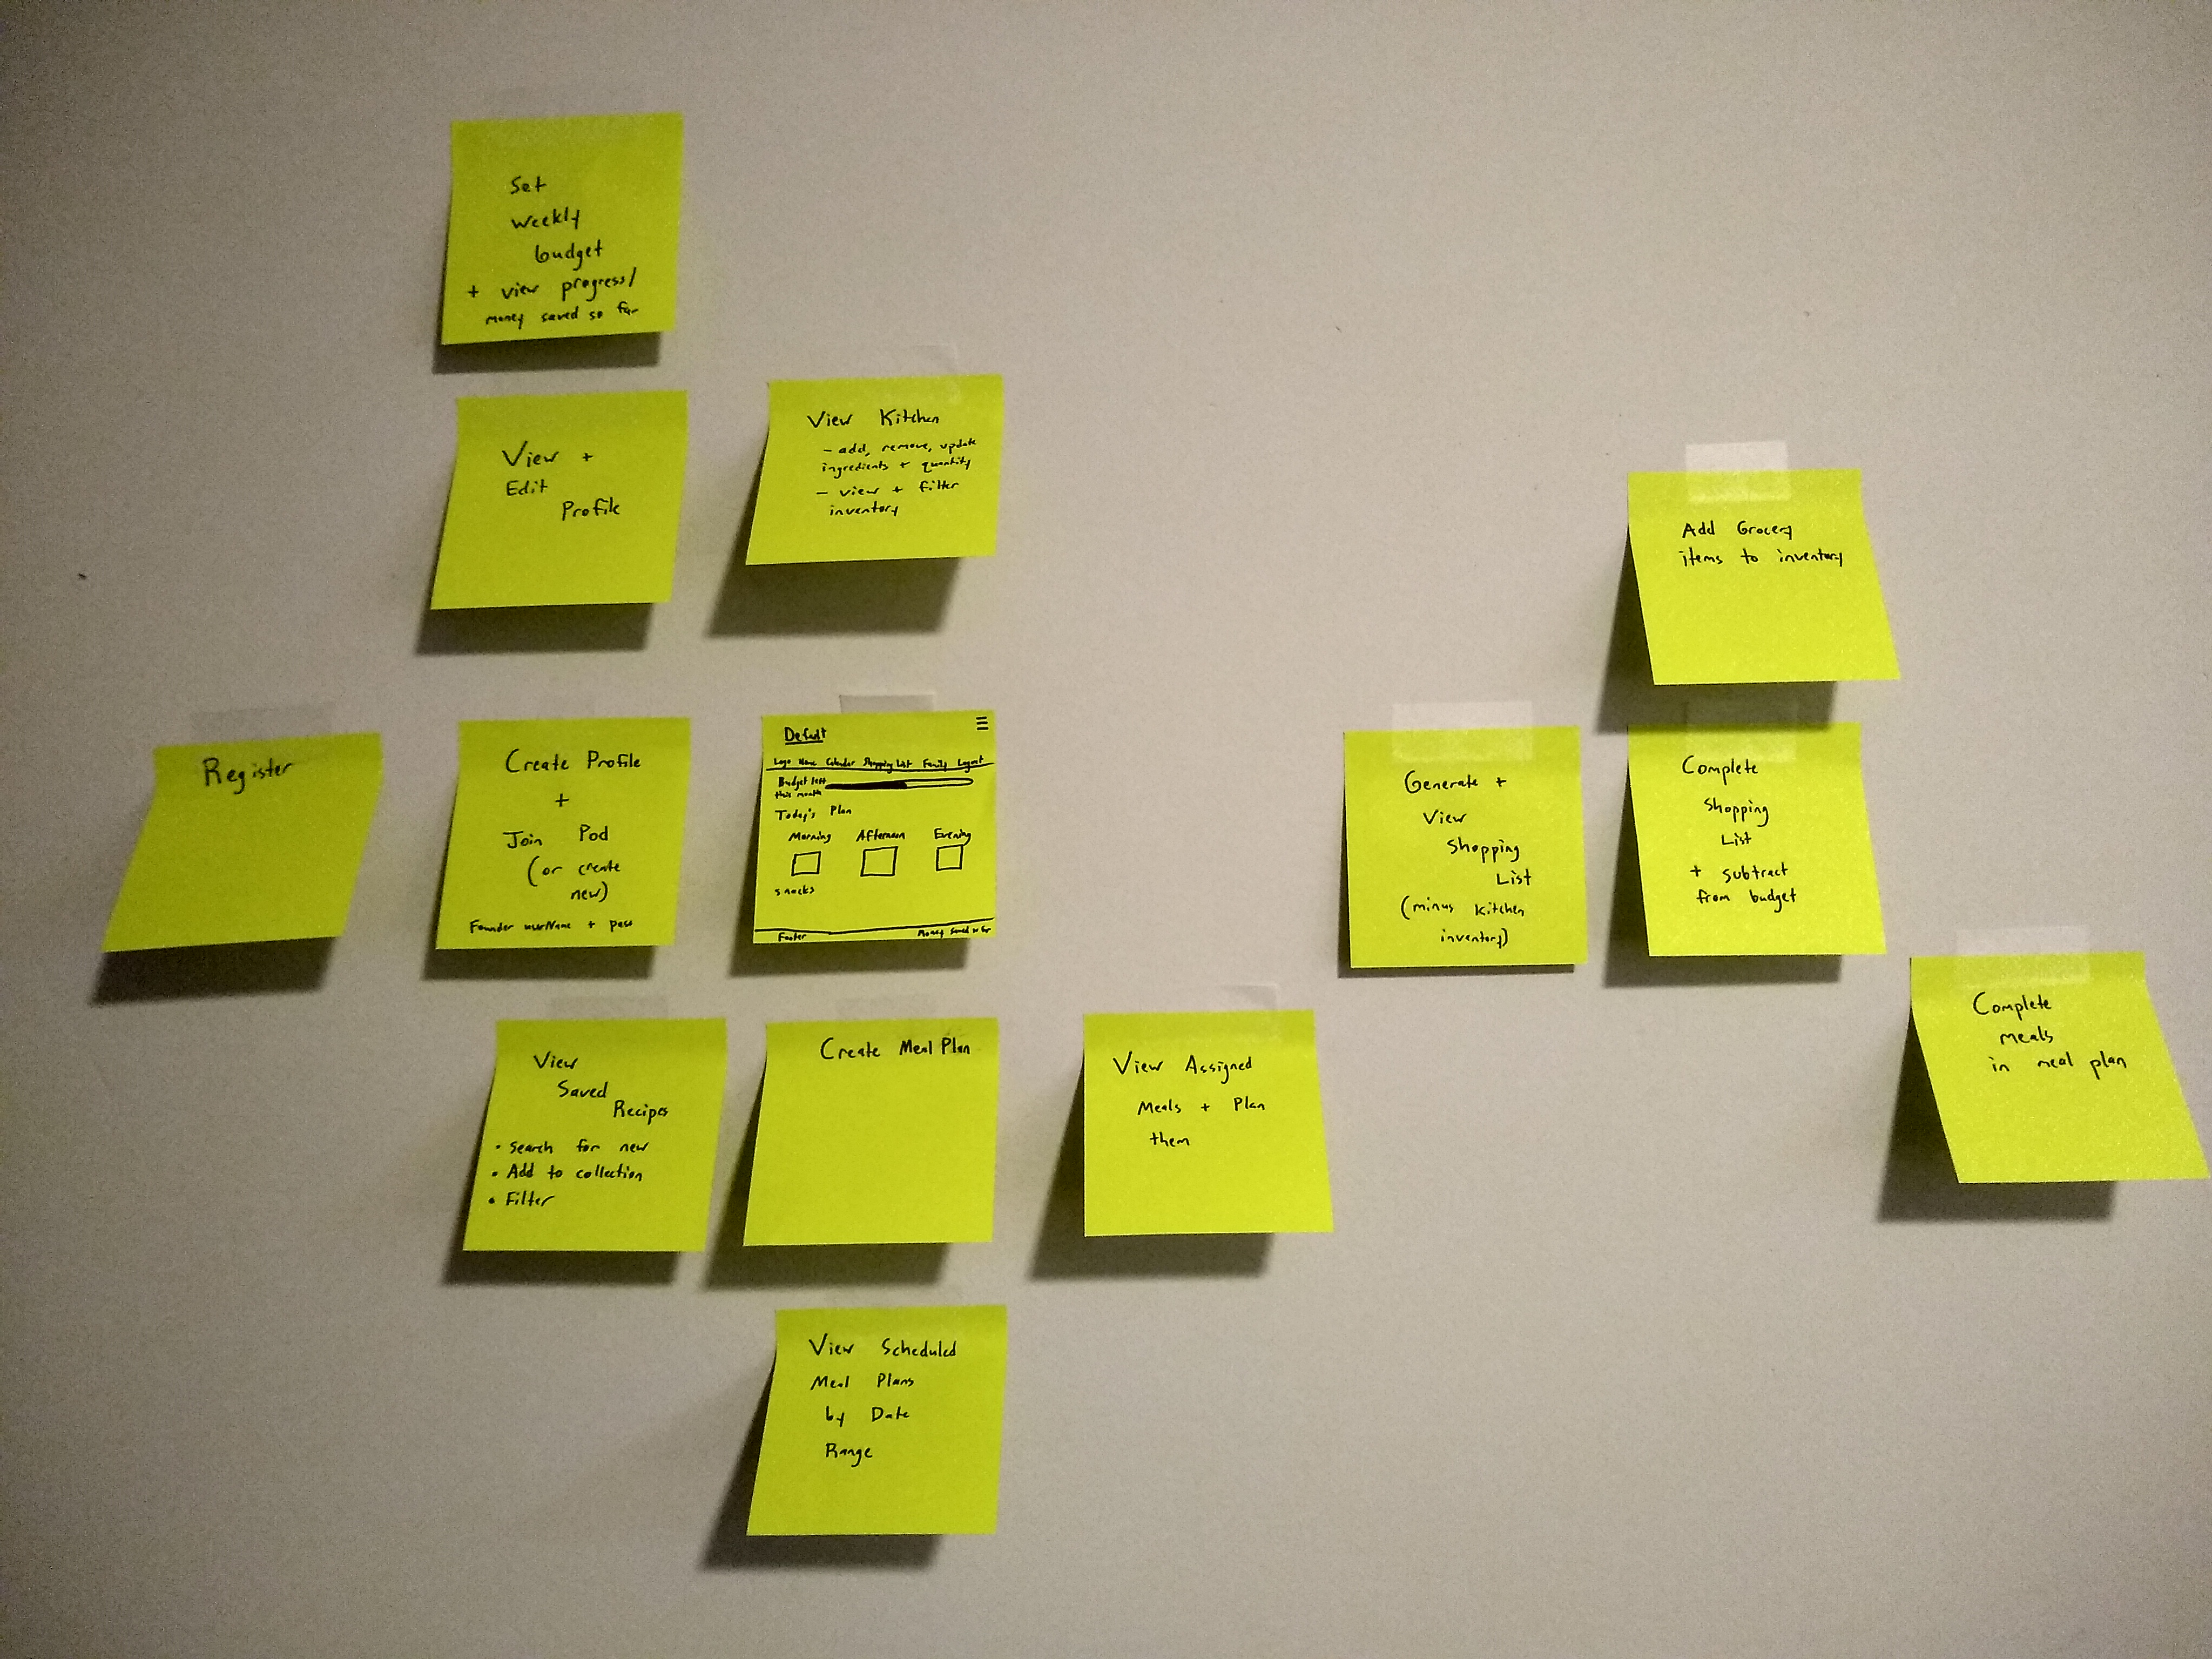 Set
weekly
budget
+ view progress/
money saved so far
View +
Edit
Profile
View Kitchen
- add, remove, update
ingredients + quantity
- view + filter
inventory
Add Grocery
items to inventory
Register
Create Profile
+
Join Pod
(or create
new)
Founder userName + pass
Default
Logo Home Calendar Shopping List Family Logout
Budget left
this month
Today's Plan
Morning Afternoon Evening
snacks
Footer Money Saved so far
Generate +
View
Shopping
List
(minus kitchen
inventory)
Complete
Shopping
List
+ subtract
from budget
View
Saved
Recipes
• Search for new
• Add to collection
• Filter
Create Meal Plan
View Assigned
Meals + Plan
them
Complete
meals
in meal plan
View Scheduled
Meal Plans
by Date
Range